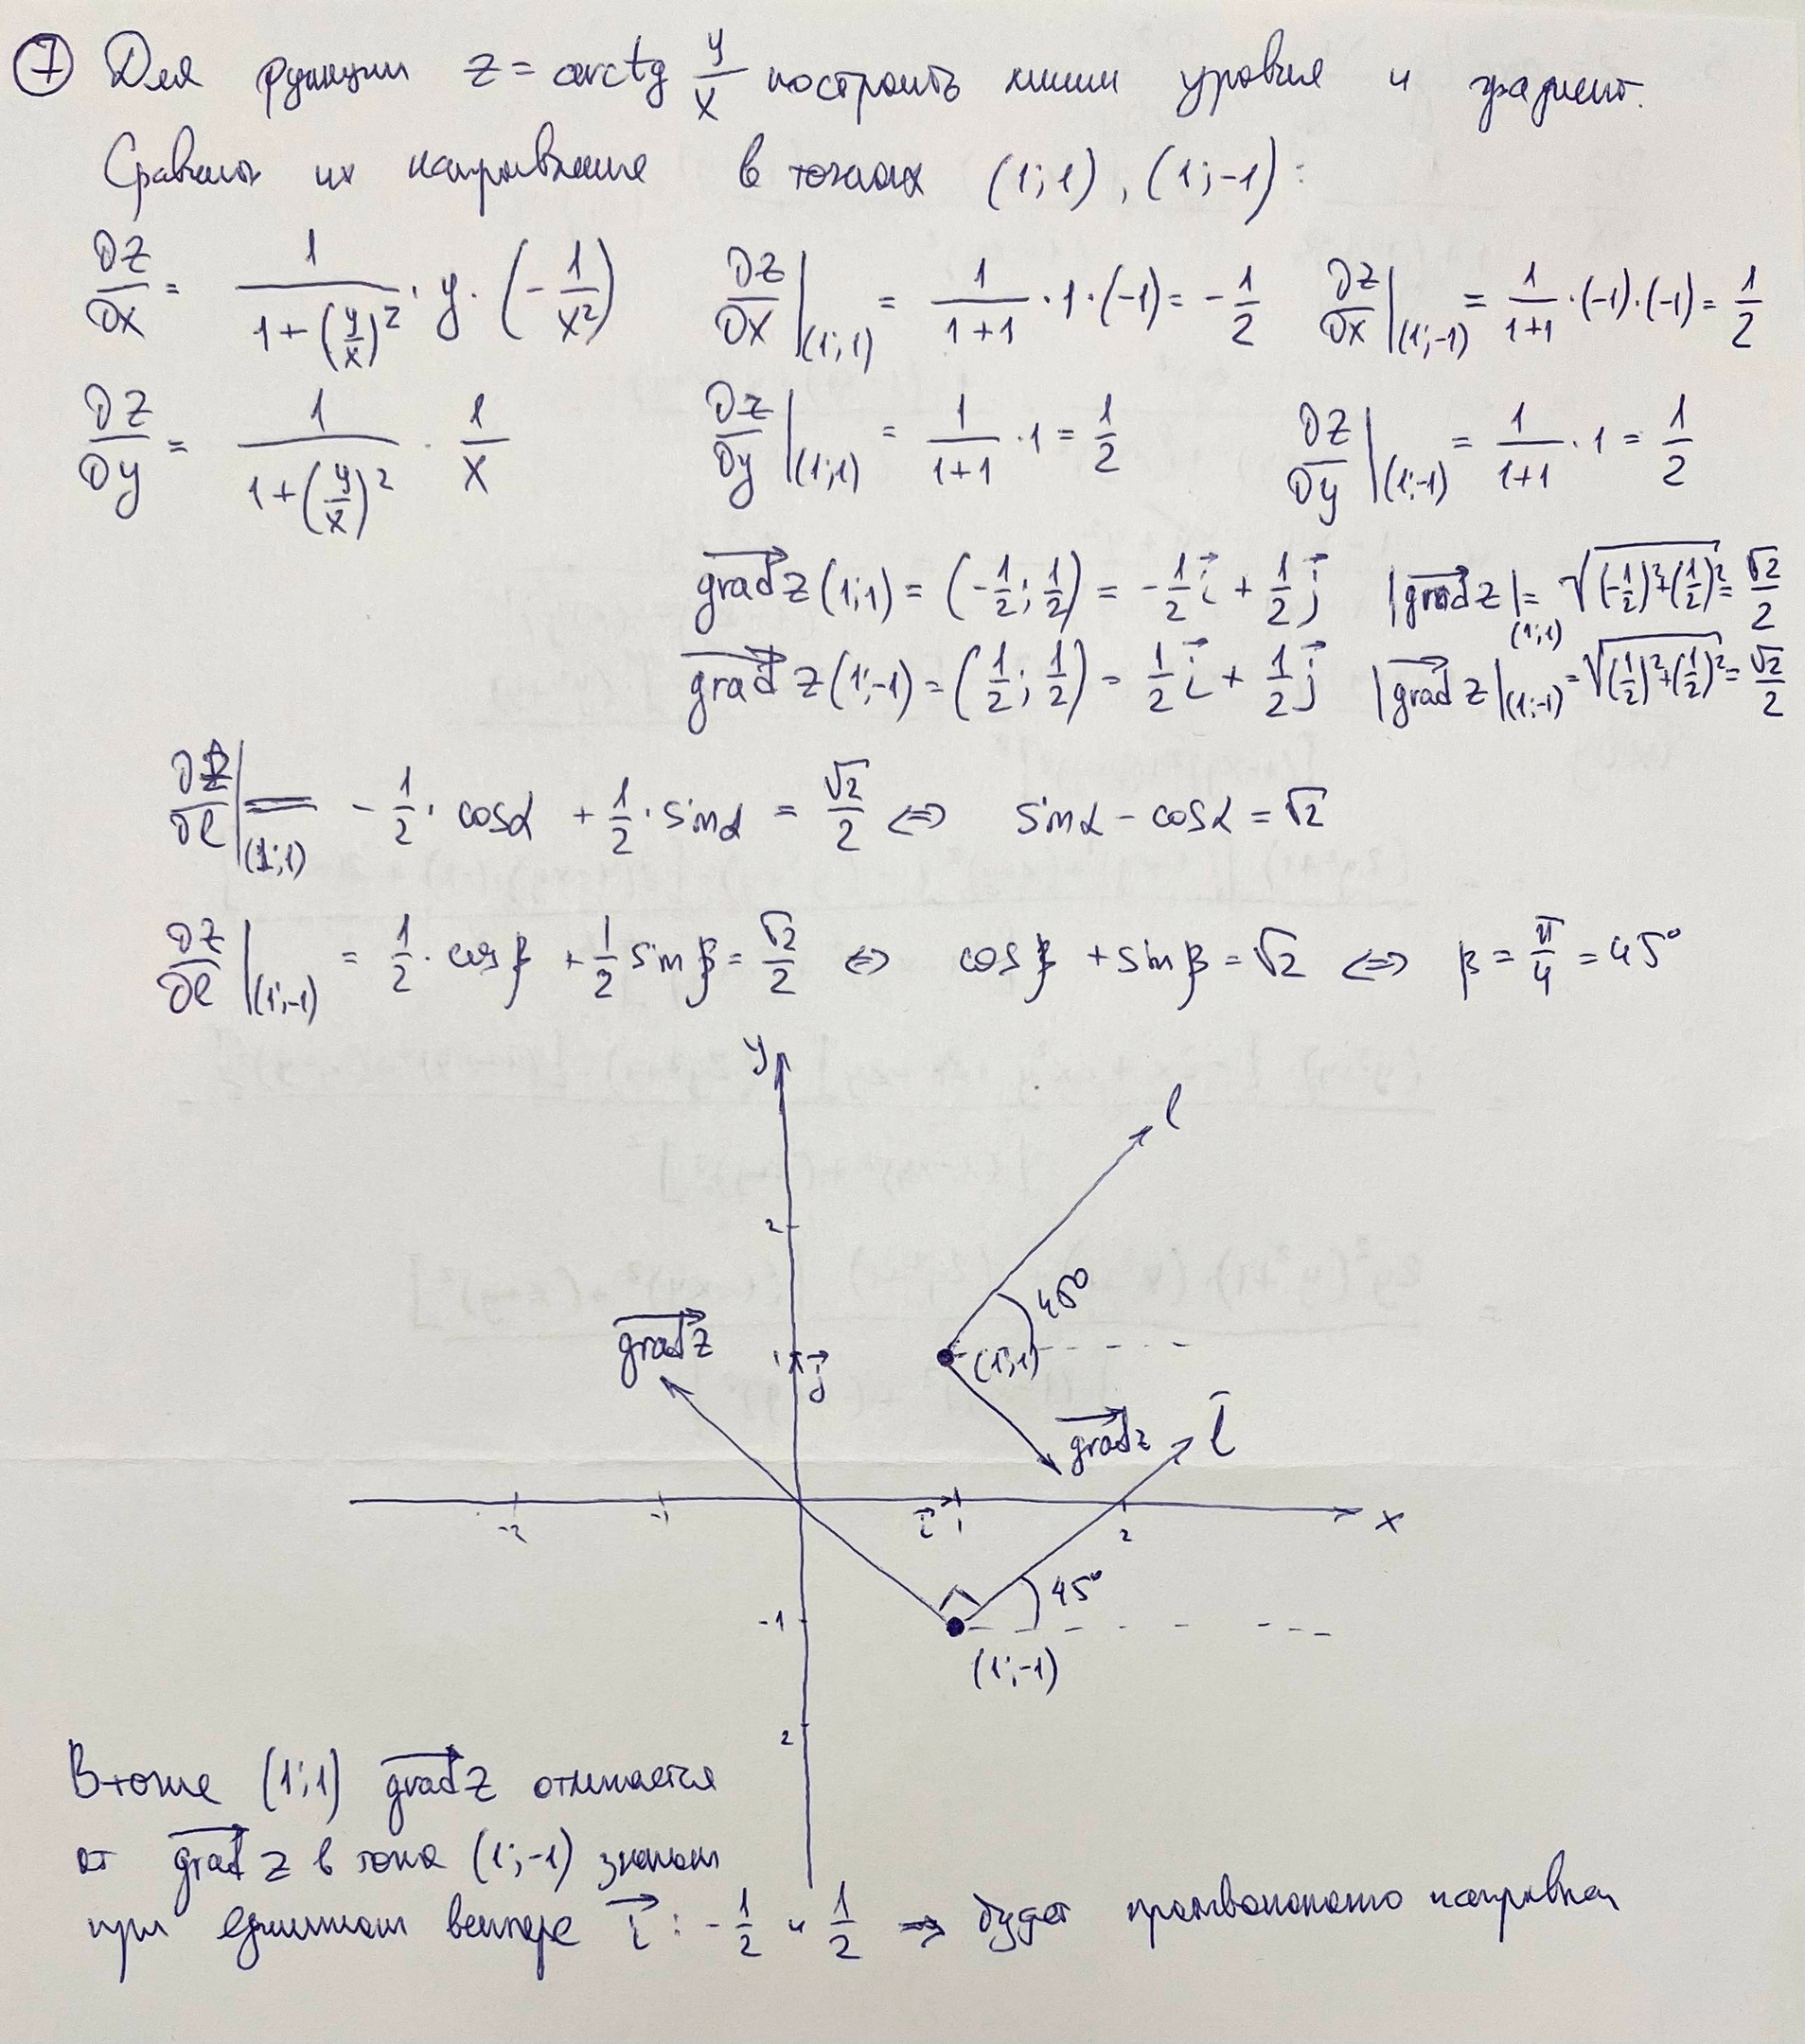 7 Для функции z = arctg y/x построить линии уровня и градиент.
Сравнить их направление в точках (1;1), (1;-1):
∂z/∂x = 1/(1+(y/x)²) · y · (-1/x²) ∂z/∂x|(1;1) = 1/(1+1) · 1 · (-1) = -1/2 ∂z/∂x|(1;-1) = 1/(1+1) · (-1) · (-1) = 1/2
∂z/∂y = 1/(1+(y/x)²) · 1/x ∂z/∂y|(1;1) = 1/(1+1) · 1 = 1/2 ∂z/∂y|(1;-1) = 1/(1+1) · 1 = 1/2
grad z (1;1) = (-1/2; 1/2) = -1/2 i + 1/2 j |grad z|(1;1) = √((-1/2)²+(1/2)²) = √2/2
grad z (1;-1) = (1/2; 1/2) = 1/2 i + 1/2 j |grad z|(1;-1) = √((1/2)²+(1/2)²) = √2/2
∂z/∂l|(1;1) = -1/2 · cosα + 1/2 · sinα = √2/2 ⇔ sinα - cosα = √2
∂z/∂l|(1;-1) = 1/2 · cosβ + 1/2 sinβ = √2/2 ⇔ cosβ + sinβ = √2 ⇔ β = π/4 = 45°
y
l
2
45°
grad z
1 j
(1;1)
grad z
l
-2 -1 i 1 2 x
45°
-1
(1;-1)
2
В точке (1;1) grad z отличается
от grad z в точке (1;-1) знаком
при единичном векторе i: -1/2 и 1/2 ⇒ будет противоположно направлен